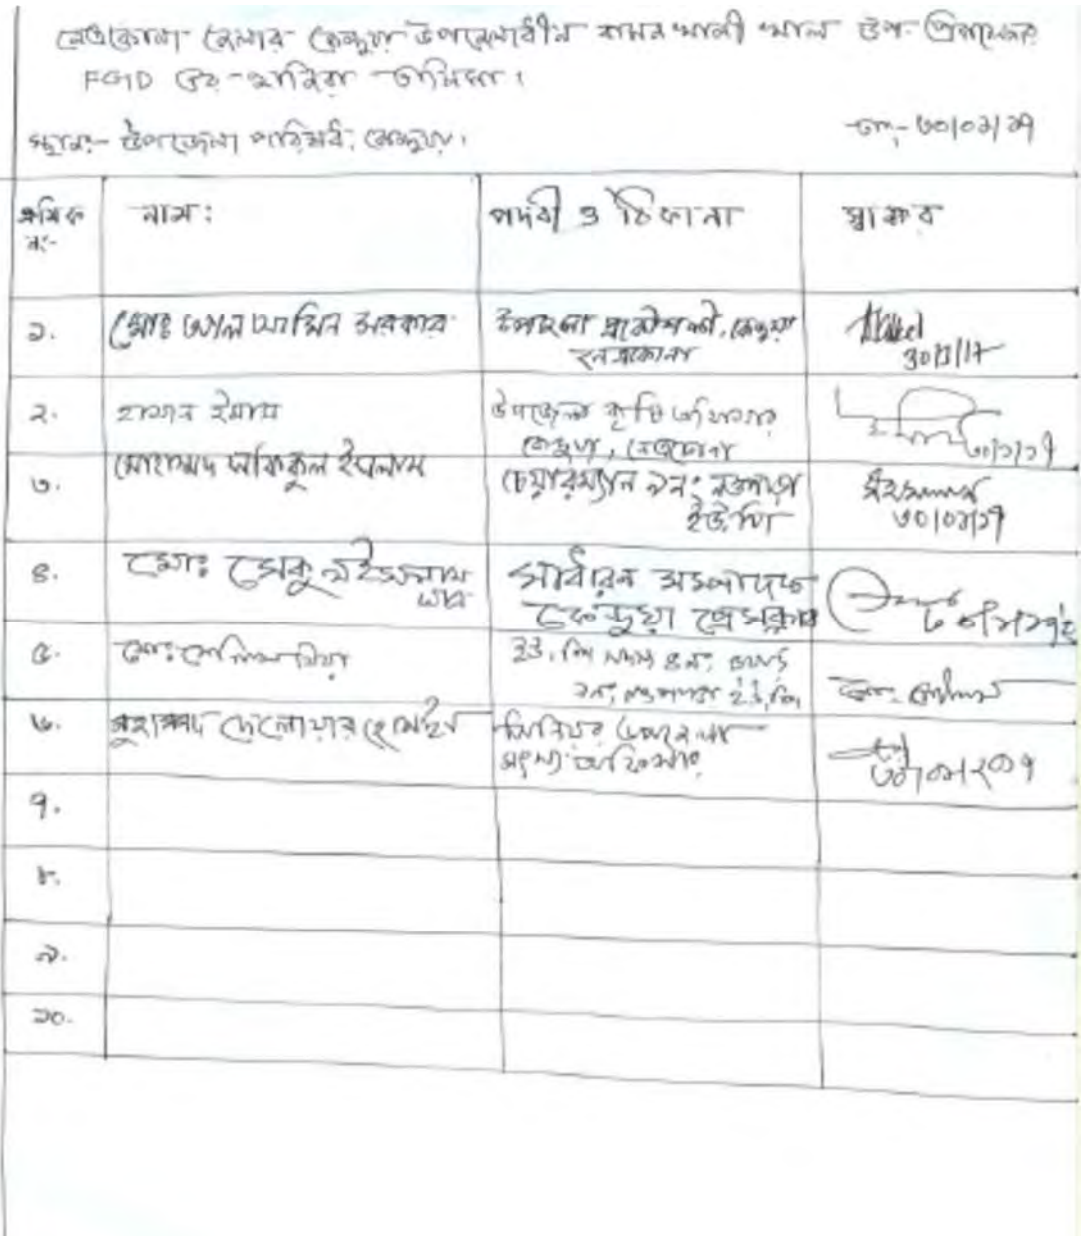 নেত্রকোনা জেলার কেন্দুয়া উপজেলাধীন খালী খাল উপ-প্রকল্পের
FGD এর হাজিরা তালিকা।
স্থানঃ- উপজেলা পরিষদ, কেন্দুয়া।
তাং- ৩০/০১/১৭
ক্রমিক নং- নামঃ পদবী ও ঠিকানা স্বাক্ষর
১. মোঃ আল আমিন সরকার উপজেলা প্রকৌশলী, কেন্দুয়া
নেত্রকোনা
30/1/17
২. হাসান ইমাম উপজেলা কৃষি অফিসার
কেন্দুয়া, নেত্রকোনা
৩০/১/১৭
৩. মোহাম্মদ ইসলাম চেয়ারম্যান ১নং নওপাড়া
ইউ,পি
৩০/০১/১৭
৪. মোঃ সাধারন সম্পাদক
কেন্দুয়া প্রেসক্লাব
৫. মোঃ সেলিম মিয়া ইউ,পি সদস্য ৪নং ওয়ার্ড
১নং নওপাড়া ইউ,পি,
মোঃ সেলিম
৬. মুহাম্মদ দেলোয়ার হোসাইন সিনিয়র উপজেলা
মৎস্য অফিসার
৩০/০১/২০১৭
৭.
৮.
৯.
১০.